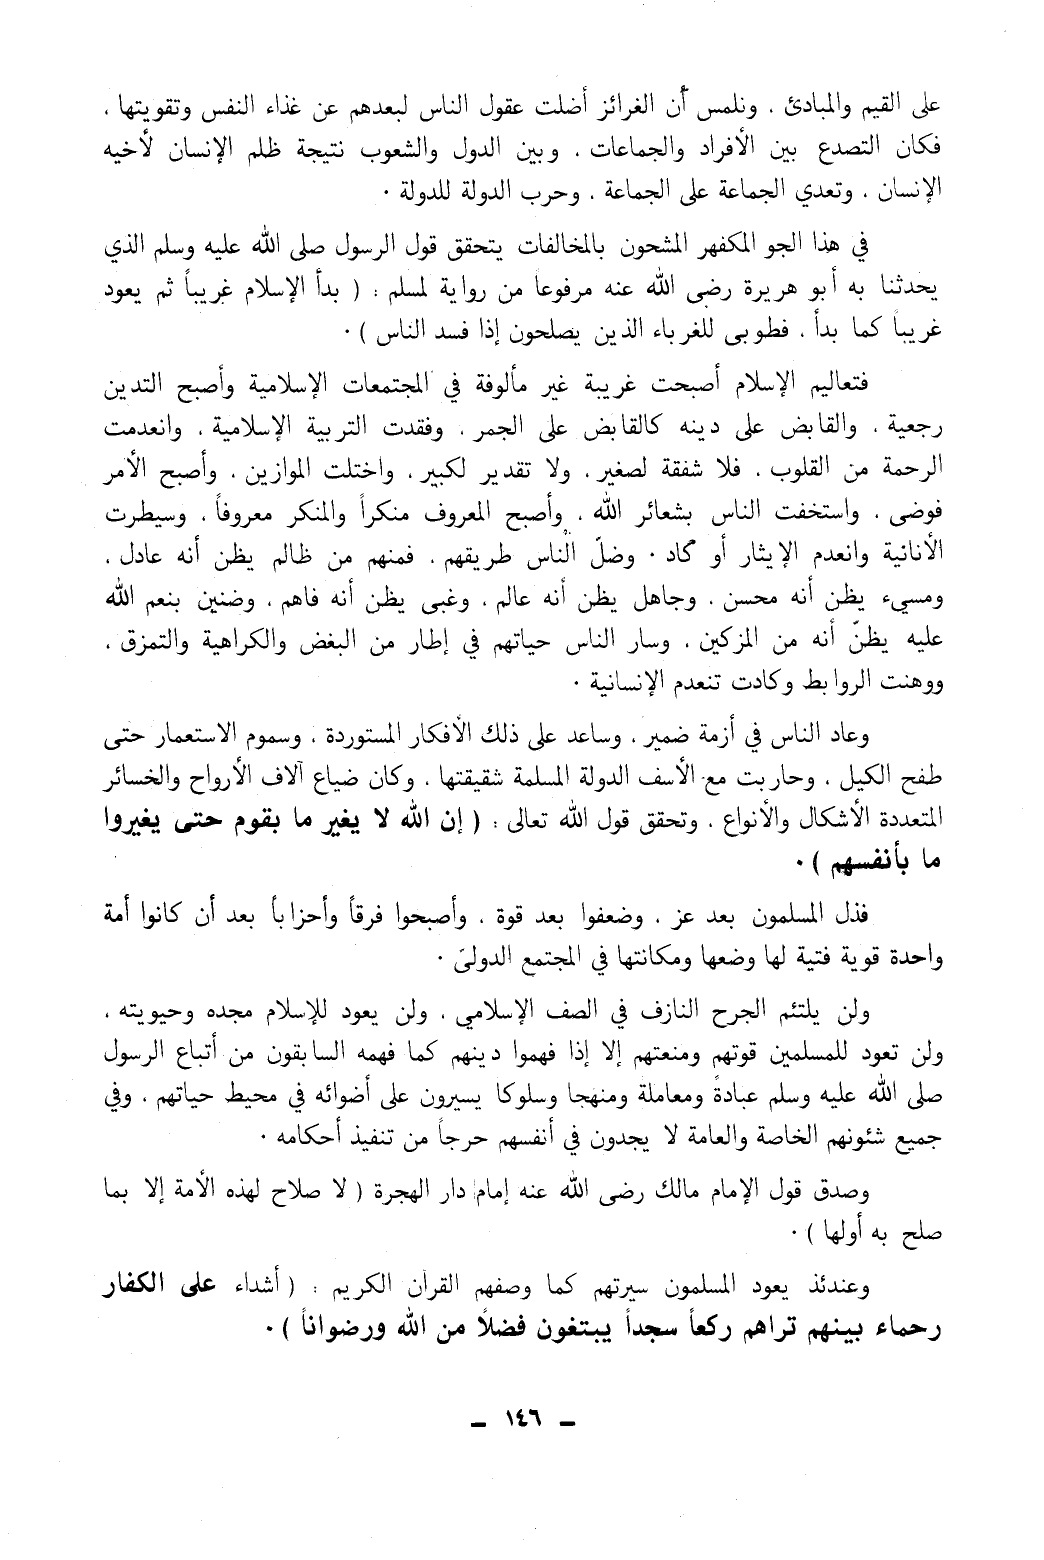 على القيم والمبادئ ، ونلمس أن الغرائز أضلت عقول الناس لبعدهم عن غذاء النفس وتقويتها ،
فكان التصدع بين الأفراد والجماعات ، وبين الدول والشعوب نتيجة ظلم الإنسان لأخيه
الإنسان ، وتعدي الجماعة على الجماعة ، وحرب الدولة للدولة ·
في هذا الجو المكفهر المشحون بالمخالفات يتحقق قول الرسول صلى الله عليه وسلم الذي
يحدثنا به أبو هريرة رضى الله عنه مرفوعا من رواية لمسلم : ( بدأ الإسلام غريباً ثم يعود
غريباً كما بدأ ، فطوبى للغرباء الذين يصلحون إذا فسد الناس ) ·
فتعاليم الإسلام أصبحت غريبة غير مألوفة في المجتمعات الإسلامية وأصبح التدين
رجعية ، والقابض على دينه كالقابض على الجمر ، وفقدت التربية الإسلامية ، وانعدمت
الرحمة من القلوب ، فلا شفقة لصغير ، ولا تقدير لكبير ، واختلت الموازين ، وأصبح الأمر
فوضى ، واستخفت الناس بشعائر الله ، وأصبح المعروف منكراً والمنكر معروفاً ، وسيطرت
الأنانية وانعدم الإيثار أو كاد · وضلّ الناس طريقهم ، فمنهم من ظالم يظن أنه عادل ،
ومسيء يظن أنه محسن ، وجاهل يظن أنه عالم ، وغبى يظن أنه فاهم ، وضنين بنعم الله
عليه يظنّ أنه من المزكين ، وسار الناس حياتهم في إطار من البغض والكراهية والتمزق ،
ووهنت الروابط وكادت تنعدم الإنسانية ·
وعاد الناس في أزمة ضمير ، وساعد على ذلك الأفكار المستوردة ، وسموم الاستعمار حتى
طفح الكيل ، وحاربت مع الأسف الدولة المسلمة شقيقتها ، وكان ضياع آلاف الأرواح والخسائر
المتعددة الأشكال والأنواع ، وتحقق قول الله تعالى : ( إن الله لا يغير ما بقوم حتى يغيروا
ما بأنفسهم ) ·
فذل المسلمون بعد عز ، وضعفوا بعد قوة ، وأصبحوا فرقاً وأحزاباً بعد أن كانوا أمة
واحدة قوية فتية لها وضعها ومكانتها في المجتمع الدولىّ ·
ولن يلتئم الجرح النازف في الصف الإسلامي ، ولن يعود للإسلام مجده وحيويته ،
ولن تعود للمسلمين قوتهم ومنعتهم إلا إذا فهموا دينهم كما فهمه السابقون من أتباع الرسول
صلى الله عليه وسلم عبادةً ومعاملة ومنهجا وسلوكا يسيرون على أضوائه في محيط حياتهم ، وفي
جميع شئونهم الخاصة والعامة لا يجدون في أنفسهم حرجاً من تنفيذ أحكامه ·
وصدق قول الإمام مالك رضى الله عنه إمام دار الهجرة ( لا صلاح لهذه الأمة إلا بما
صلح به أولها ) ·
وعندئذ يعود المسلمون سيرتهم كما وصفهم القرآن الكريم : ( أشداء على الكفار
رحماء بينهم تراهم ركعاً سجداً يبتغون فضلاً من الله ورضواناً ) ·
– ١٤٦ –